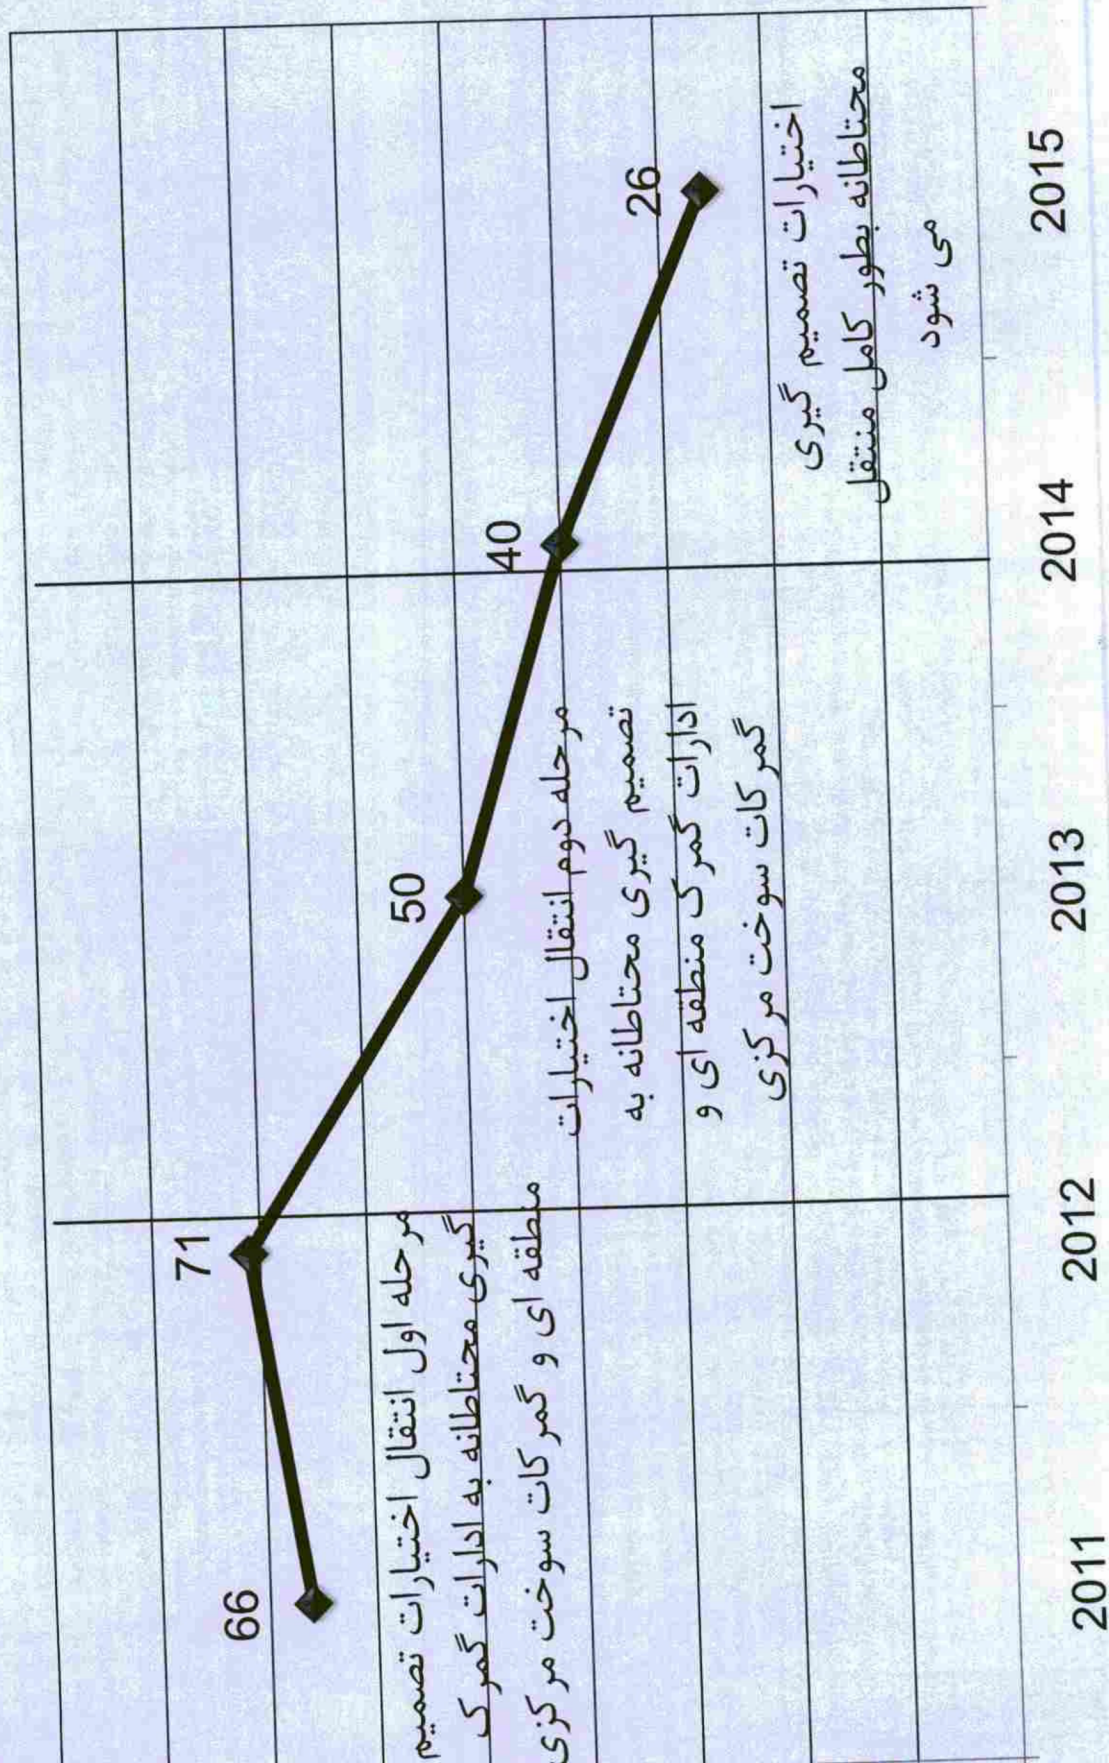 66
71
50
40
26
مرحله اول انتقال اختیارات تصمیم
گیری محتاطانه به ادارات گمرک
منطقه ای و گمرکات سوخت مرکزی
مرحله دوم انتقال اختیارات
تصمیم گیری محتاطانه به
ادارات گمرک منطقه ای و
گمرکات سوخت مرکزی
اختیارات تصمیم گیری
محتاطانه بطور کامل منتقل
می شود
2011
2012
2013
2014
2015